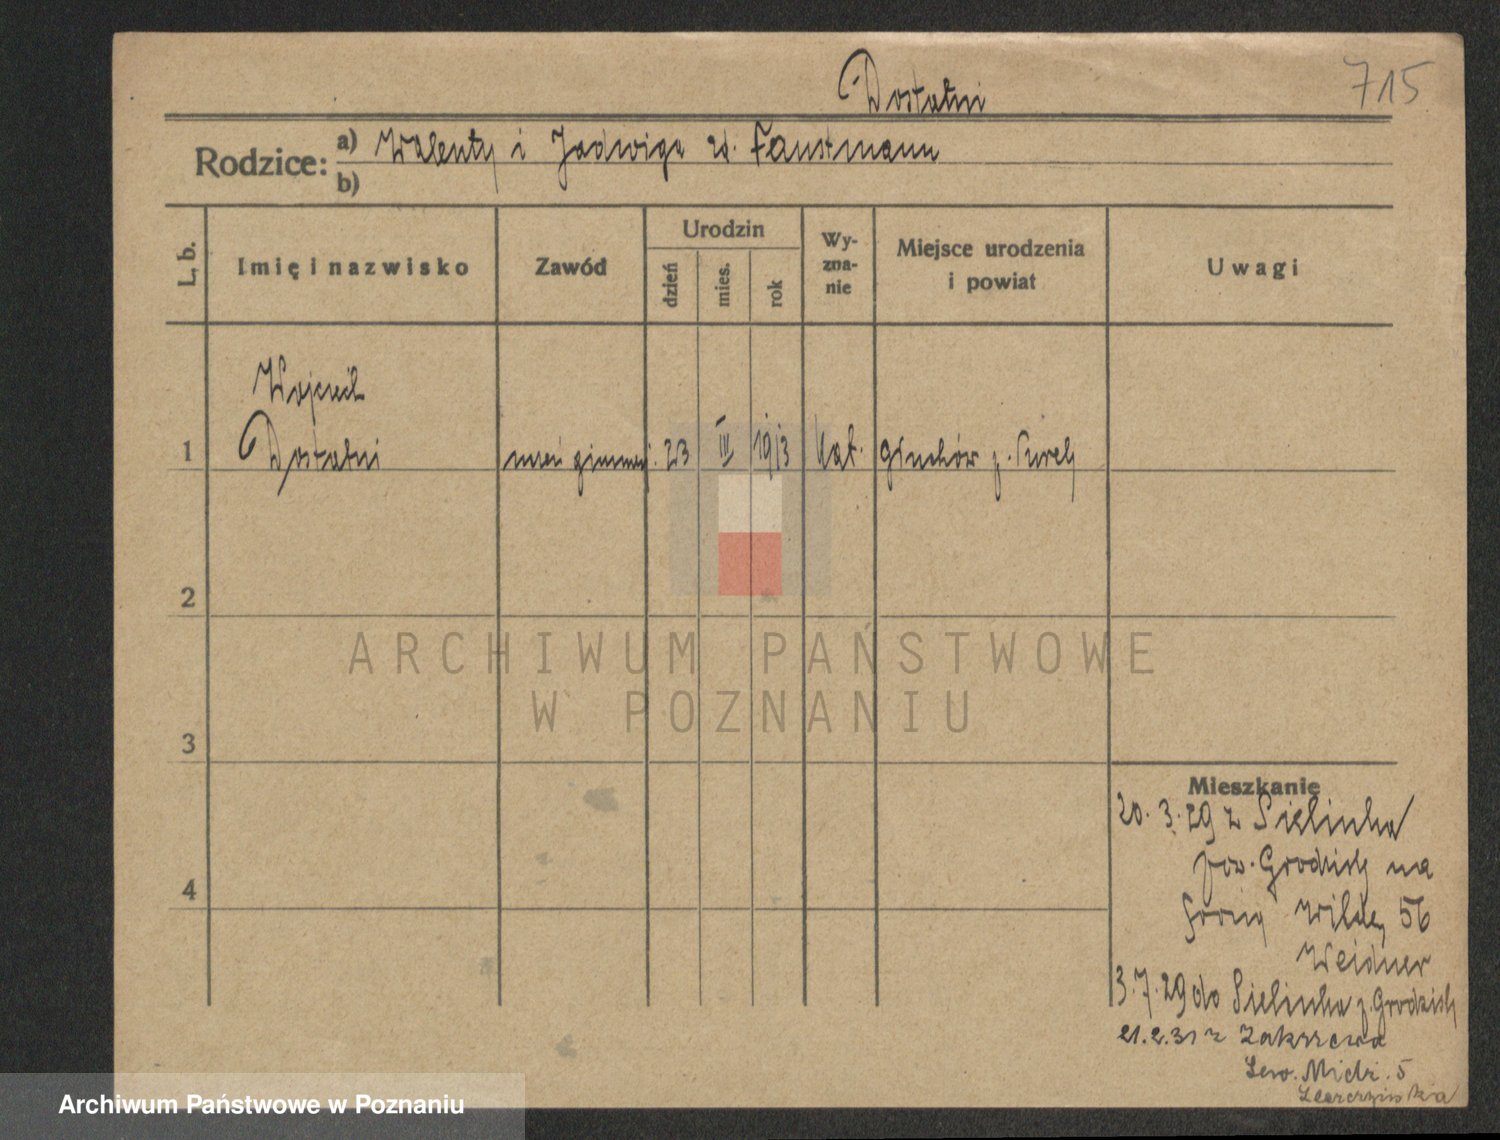 715
Dostatni
Rodzice: a) Walenty i Jadwiga z d. Faustmann
b)
L. b.
Imię i nazwisko
Zawód
Urodzin
dzień
mies.
rok
Wy-
zna-
nie
Miejsce urodzenia
i powiat
Uwagi
Wojciech
1 Dostatni uczeń gimnazj. 23 III 1913 kat. Głuchów p. Turek
2
3
4
ARCHIWUM PAŃSTWOWE
W POZNANIU
Mieszkanie
20.3.29 z Sielinka
pow. Grodzisk na
Górną Wildę 56
Weidner
3.7.29 do Sielinka p. Grodzisk
21.2.31 z Zakrzewa
5
Archiwum Państwowe w Poznaniu